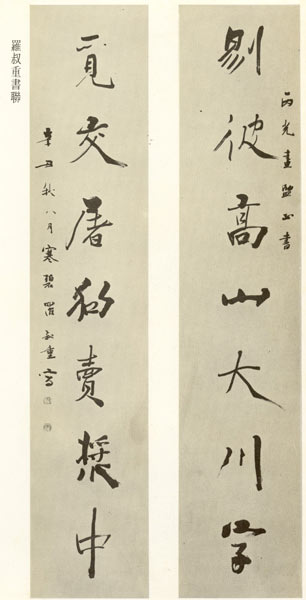 丙光畫盟正書
剔彼高山大川字
覓交屠狗賣漿中
辛丑秋八月寒碧羅叔重寫
羅叔重書聯